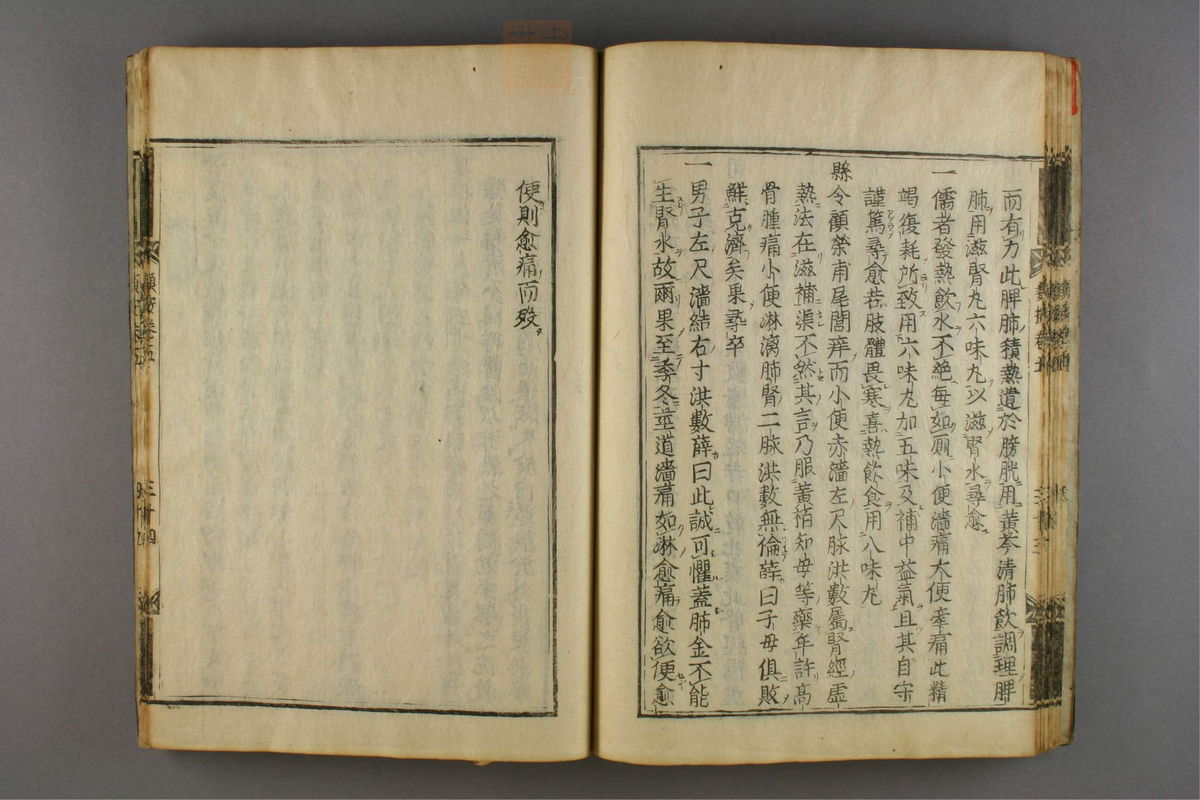 而有力此脾肺積熱遺於膀胱用黃芩清肺飲調理脾
肺用滋腎丸六味丸以滋腎水尋愈
一儒者發熱飲水不絕每如厠小便濇痛大便牽痛此精
竭復耗所致用六味丸加五味及補中益氣且其自守
謹篤尋愈若肢體畏寒喜熱飲食用八味丸
縣令顧榮甫尾閭痒而小便赤濇左尺脉洪數屬腎經虛
熱法在滋補渠不然其言乃服黃栢知母等藥年許高
骨腫痛小便淋漓肺腎二脉洪數無倫薛曰子母俱敗
鮮克濟矣果尋卒
一男子左尺濇結右寸洪數薛曰此誠可懼蓋肺金不能
生腎水故爾果至季冬莖道濇痛如淋愈痛愈欲便愈
便則愈痛而歿
類按卷五
三十四